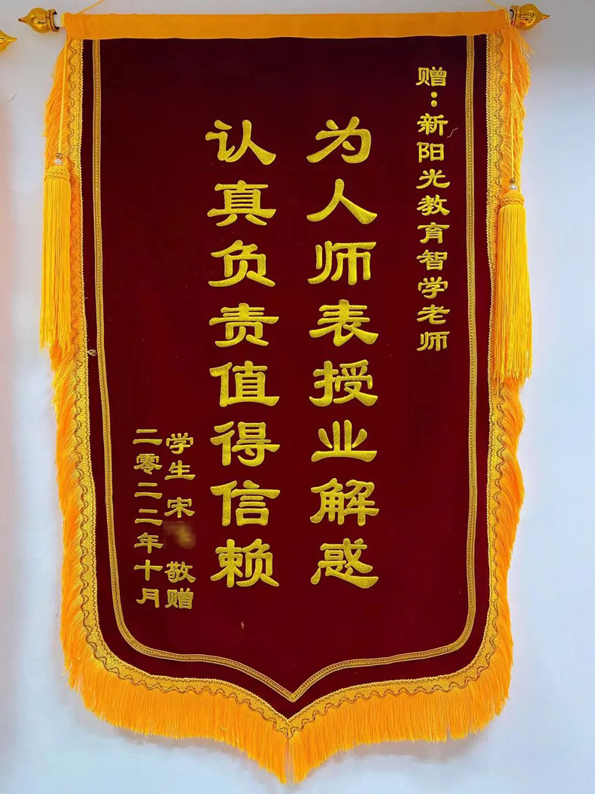 赠：新阳光教育智学老师
为人师表授业解惑
认真负责值得信赖
学生 宋 敬赠
二零二二年十月